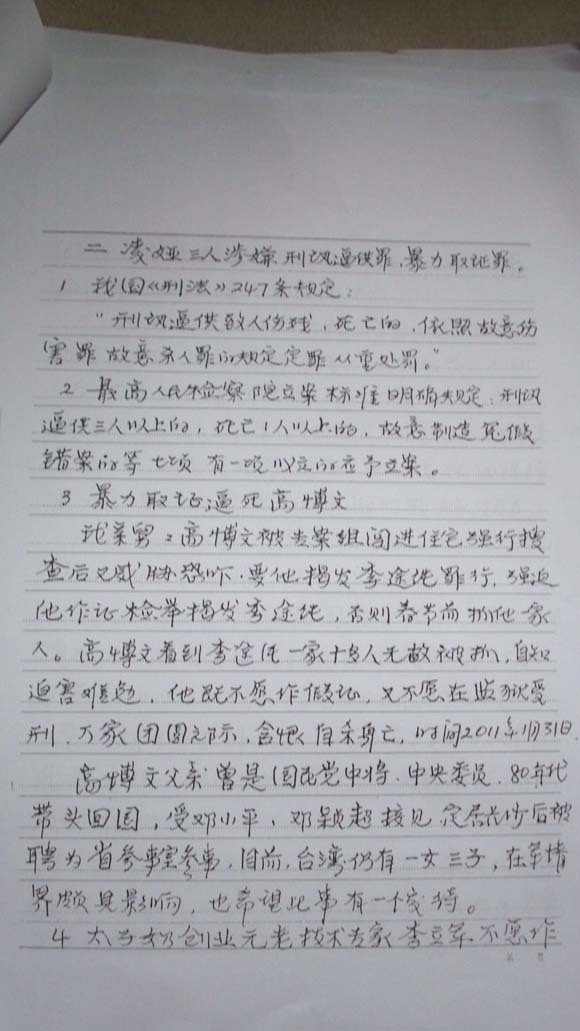 二 凌娅三人涉嫌刑讯逼供罪、暴力取证罪。
1 我国《刑法》247条规定：
“刑讯逼供致人伤残，死亡的，依照故意伤
害罪 故意杀人罪的规定定罪从重处罚。”
2 最高人民检察院立案标准明确规定：刑讯
逼供三人以上的，死亡1人以上的，故意制造冤假
错案的等七项 有一项成立的应予立案。
3 暴力取证逼死高博文
我亲舅：高博文被专案组闯进住宅强行搜
查后又威胁恐吓，要他揭发李途纯罪行，强迫
他作证检举揭发李途纯，否则春节前抓他一家
人。高博文看到李途纯一家十多人无故被抓，自知
迫害难免，他既不愿作假证，又不愿在监狱受
刑，万家团圆之际，含恨自杀身亡，时间2011年1月31日。
高博文父亲曾是国民党中将，中央委员，80年代
带头回国，受邓小平、邓颖超接见 定居长沙后被
聘为省参事室参事，目前，台湾仍有一女三子，在军情
界颇具影响，也希望此事有一个交待。
4 太子奶创业元老技术专家李立军不愿作